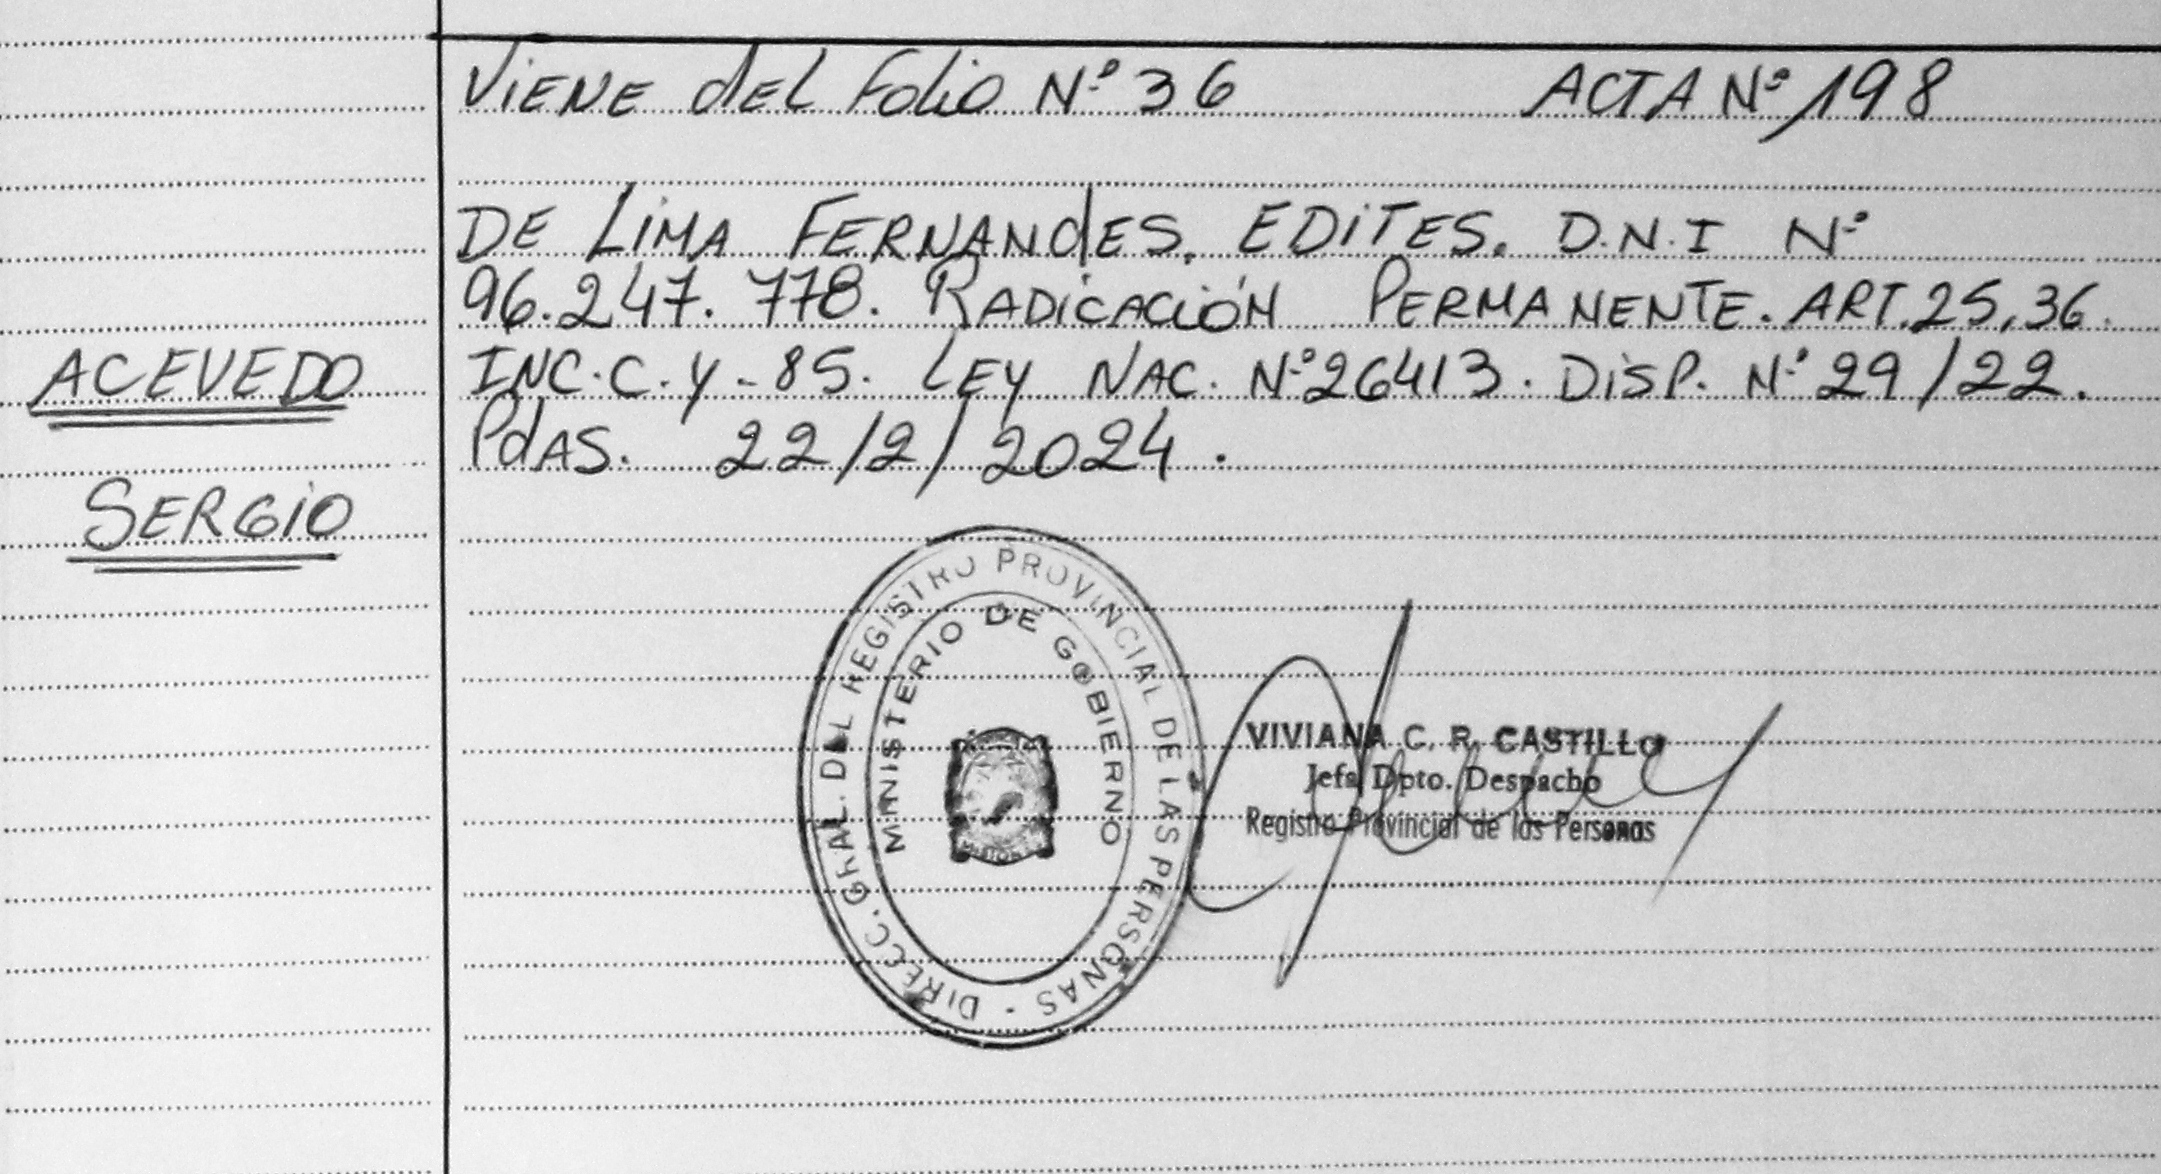 ViENE dEL Folio Nº 36 ACTA Nº 198
DE LiMA FERNANdES. EDiTES. D.N.I Nº
96.247.778. RADiCACiÓN PERMANENTE. ART.25,36.
ACEVEDO
INC.C.Y-85. LEY NAC. Nº26413. DiSP. Nº 29/22.
PdAS. 22/2/2024.
SERGiO
DIRECC. GRAL. DEL REGISTRO PROVINCIAL DE LAS PERSONAS -
MINISTERIO DE GOBIERNO
VIVIANA C. R. CASTILLO
Jefa Dpto. Despacho
Registro Provincial de las Personas